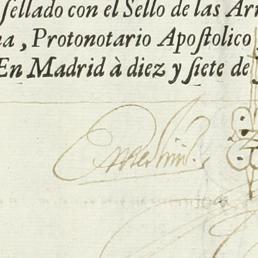 ſellado con el Sello de las Ar
na, Protonotario Apoſtolico
En Madrid à diez y ſiete de